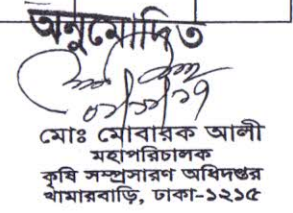 অনুমোদিত
মোঃ মোবারক আলী
মহাপরিচালক
কৃষি সম্প্রসারণ অধিদপ্তর
খামারবাড়ি, ঢাকা-১২১৫